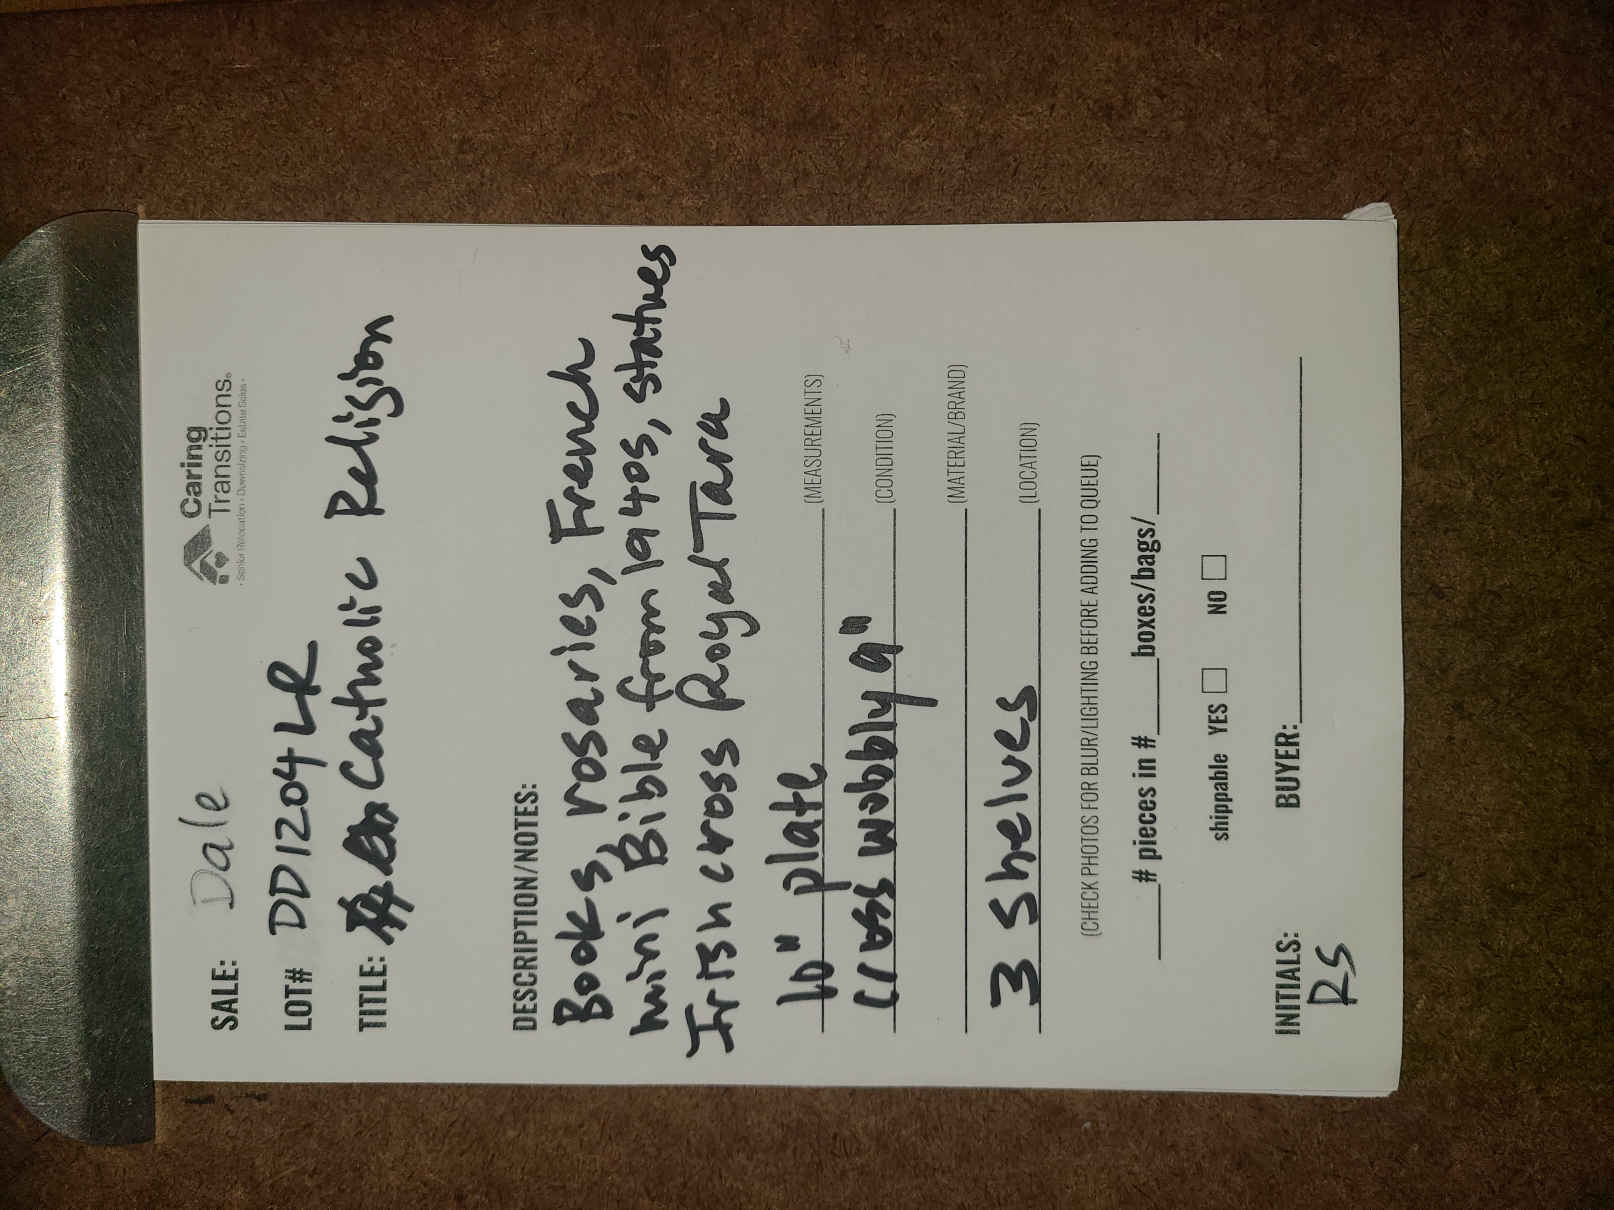 Caring
Transitions®
• Senior Relocation • Downsizing • Estate Sales •
SALE: Dale
LOT# DD1204LR
TITLE: Catholic Religion
DESCRIPTION/NOTES:
Books, rosaries, French
mini Bible from 1940s, statues
Irish cross Royal Tara
10" plate (MEASUREMENTS)
Cross wobbly 9" (CONDITION)
(MATERIAL/BRAND)
3 Shelves (LOCATION)
(CHECK PHOTOS FOR BLUR/LIGHTING BEFORE ADDING TO QUEUE)
____# pieces in #____boxes/bags/____
shippable YES ☐ NO ☐
INITIALS: BUYER:
RS